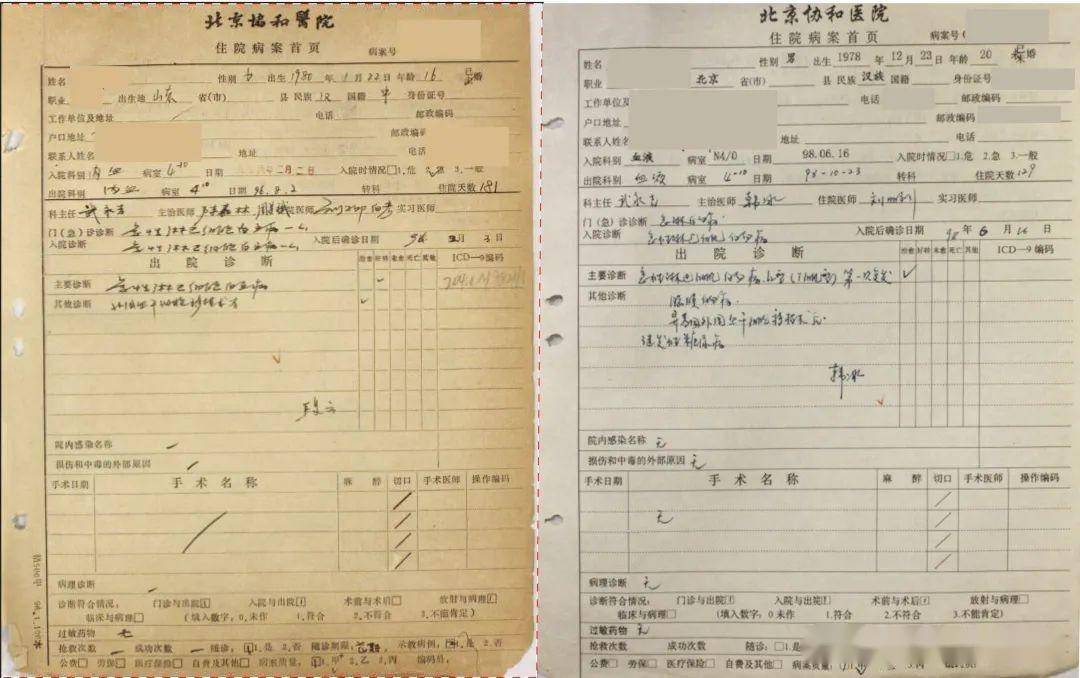 北京协和醫院
住院病案首页
病案号
姓名 性别 出生 1980 年 1月 22日 年龄 16 婚
职业 出生地 山东 省(市) 县 民族 汉 国籍 中 身份证号
工作单位及地址 电话 邮政编码
户口地址 邮政编码
联系人姓名 地址 电话
入院科别 内血 病室 4-10 日期 二月二日 入院时情况□1.危 2.急 3.一般
出院科别 内血 病室 4-10 日期 96.8.2 转科 住院天数 181
科主任 武永吉 主治医师 住院医师 实习医师
门(急)诊诊断 急性淋巴细胞白血病
入院诊断 急性淋巴细胞白血病 入院后确诊日期 96 2月 3日
出院诊断 治愈 好转 未愈 死亡 其他 ICD—9编码
主要诊断 急性淋巴细胞白血病
其他诊断 外周血干细胞移植术
院内感染名称
损伤和中毒的外部原因
手术日期 手术名称 麻醉 切口 手术医师 操作编码
病理诊断
诊断符合情况: 门诊与出院 入院与出院 术前与术后□ 放射与病理
临床与病理□ (填入数字,0.未作 1.符合 2.不符合 3.不能肯定)
过敏药物 无
抢救次数 成功次数 随诊: 1.是 2.否 随诊期限: 示教病例: 1.是 2.否
公费□ 劳保□ 医疗保险□ 自费及其他□ 病案质量: 1.甲 2.乙 3.丙 编码员:
北京协和医院
住院病案首页
病案号
姓名 性别 男 出生 1978 年 12月 23日 年龄 20 婚
职业 北京 省(市) 县 民族 汉族 国籍 身份证号
工作单位及 电话 邮政编码
户口地址 邮政编码
联系人姓名 地址 电话
入院科别 血液 病室 N4/0 日期 98.06.16 入院时情况□1.危 2.急 3.一般
出院科别 血液 病室 4-10 日期 98-10-23 转科 住院天数 129
科主任 武永吉 主治医师 韩冰 住院医师 实习医师
门(急)诊诊断 急淋白血病
入院诊断 急性淋巴细胞白血病 入院后确诊日期 98年 6月 16日
出院诊断 治愈 好转 未愈 死亡 其他 ICD—9编码
主要诊断 急性淋巴细胞白血病 (T细胞型) 第一次复发
其他诊断 脑膜白血病
异基因外周血干细胞移植术后
继发性糖尿病
韩冰
院内感染名称 无
损伤和中毒的外部原因 无
手术日期 手术名称 麻醉 切口 手术医师 操作编码
无
病理诊断 无
诊断符合情况: 门诊与出院 入院与出院 术前与术后 放射与病理□
临床与病理□ (填入数字,0.未作 1.符合 2.不符合 3.不能肯定)
过敏药物 无
抢救次数 成功次数 随诊: □1.是
公费□ 劳保□ 医疗保险□ 自费及其他□ 病案质量: